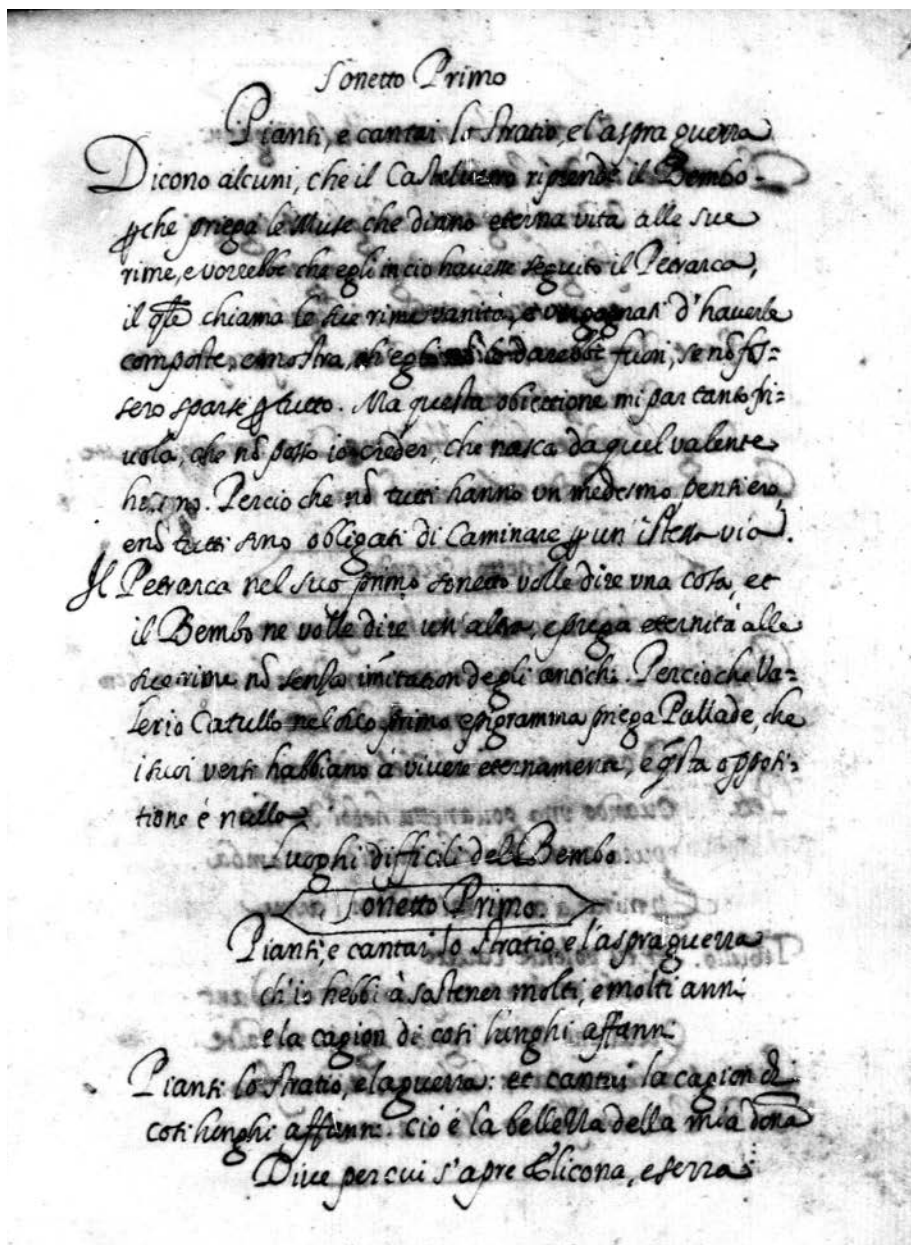 Sonetto Primo
Piansi, e cantai lo stratio, e l'aspra guerra
Dicono alcuni, che il Casteluetro riprende il Bembo
ꝑche priega le Muse che diano eterna vita alle sue
rime, e vorrebbe che egli in cio hauesse seguito il Petrarca,
il q̃le chiama le sue rime vanità, e vergognasi d'hauerle
composte, e mostra, ch'egli nõ le darebbe fuori, se nõ fos=
sero sparse ꝑ tutto. Ma questa obiettione mi par tanto fri=
uola, che nõ posso io creder, che nasca da quel valente
Percio che nõ tutti hanno un medesmo pensiero,
e nõ tutti sono obligati di Caminare ꝑ un istessa via.
Il Petrarca nel suo primo sonetto volle dire una cosa, et
il Bembo ne volle dire un'altra, e prega eternità alle
sue rime nõ senza imitation degli antichi. Percioche Va=
lerio Catullo nel suo primo epigramma priega Pallade, che
i suoi versi habbiano à vivere eternamente, e q̃sta opposi=
tione è nulla
Luoghi difficili del Bembo
Sonetto Primo.
Piansi, e cantai lo stratio, e l'aspra guerra
ch'io hebbi à sostener molti, e molti anni
e la cagion di cosi lunghi affanni
Piansi lo stratio, e la guerra: et cantai la cagion di
cosi lunghi affanni. ciò è la bellezza della mia dõna
Dive per cui s'apre Elicona, e serra